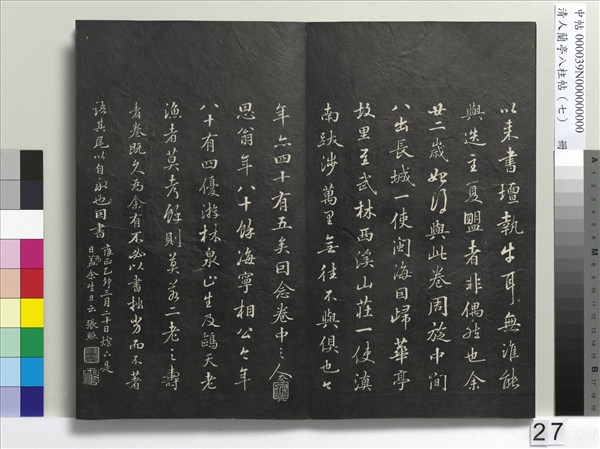 以来書壇執牛耳無誰能
與迭主夏盟者非偶然也余
廿二歲始得與此卷周旋中間
八出長城一使閩海回歸華亭
故里至武林西溪山莊一使滇
南跋涉萬里無往不與俱也
年六四十有五矣回念卷中之人
思翁年八十餘海寧相公年
八十有四優游林泉山生及鷗天老
漁者莫考餘則莫若二老之壽
者卷既久為余有不必以書拙劣而不著
語其尾以自永也因書
雍正乙卯三月二十日燈下是
日為余生日云 張照
中帖 000039N000000000
清人蘭亭八柱帖(七)
冊
27